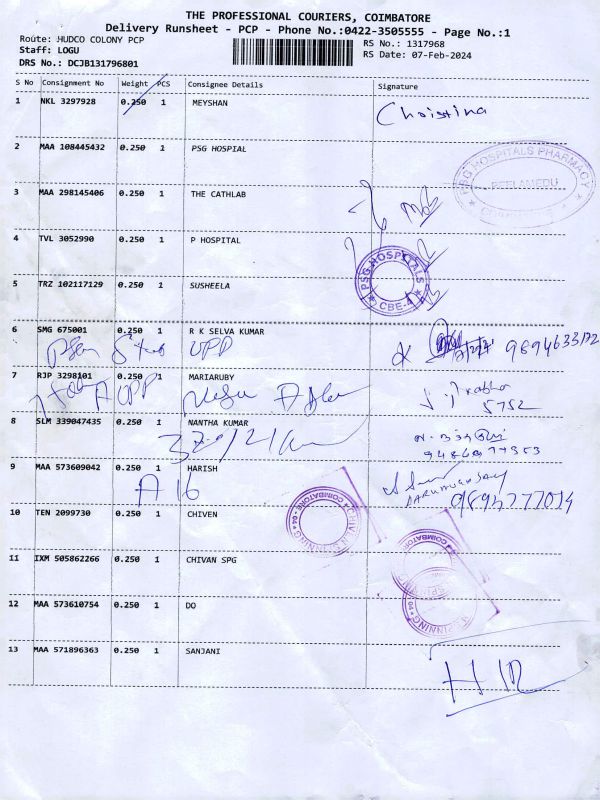 THE PROFESSIONAL COURIERS, COIMBATORE
Delivery Runsheet - PCP - Phone No.:0422-3505555 - Page No.:1
Route: HUDCO COLONY PCP
RS No.: 1317968
Staff: LOGU
RS Date: 07-Feb-2024
DRS No.: DCJB131796801
S No Consignment No Weight PCS Consignee Details Signature
1 NKL 3297928 0.250 1 MEYSHAN Christina
2 MAA 108445432 0.250 1 PSG HOSPIAL
PSG HOSPITALS PHARMACY
PEELAMEDU
3 MAA 298145406 0.250 1 THE CATHLAB
4 TVL 3052990 0.250 1 P HOSPITAL
PSG HOSPITALS
CBE-4
5 TRZ 102117129 0.250 1 SUSHEELA
6 SMG 675001 0.250 1 R K SELVA KUMAR
7 RJP 3298101 0.250 1 MARIARUBY
5752
8 SLM 339047435 0.250 1 NANTHA KUMAR
9 MAA 573609042 0.250 1 HARISH
A 16
10 TEN 2099730 0.250 1 CHIVEN
COIMBATORE - 04
CHIVEN SPINNING
11 IXM 505862266 0.250 1 CHIVAN SPG
COIMBATORE
12 MAA 573610754 0.250 1 DO
SPINNING
13 MAA 571896363 0.250 1 SANJANI